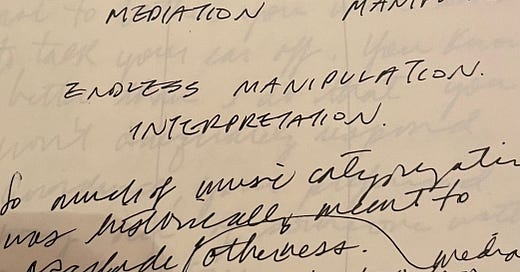 MEDIATION MANIPU
ENDLESS MANIPULATION.
INTERPRETATION.
So much of music categorizatio
was historically meant to
otherness.
media